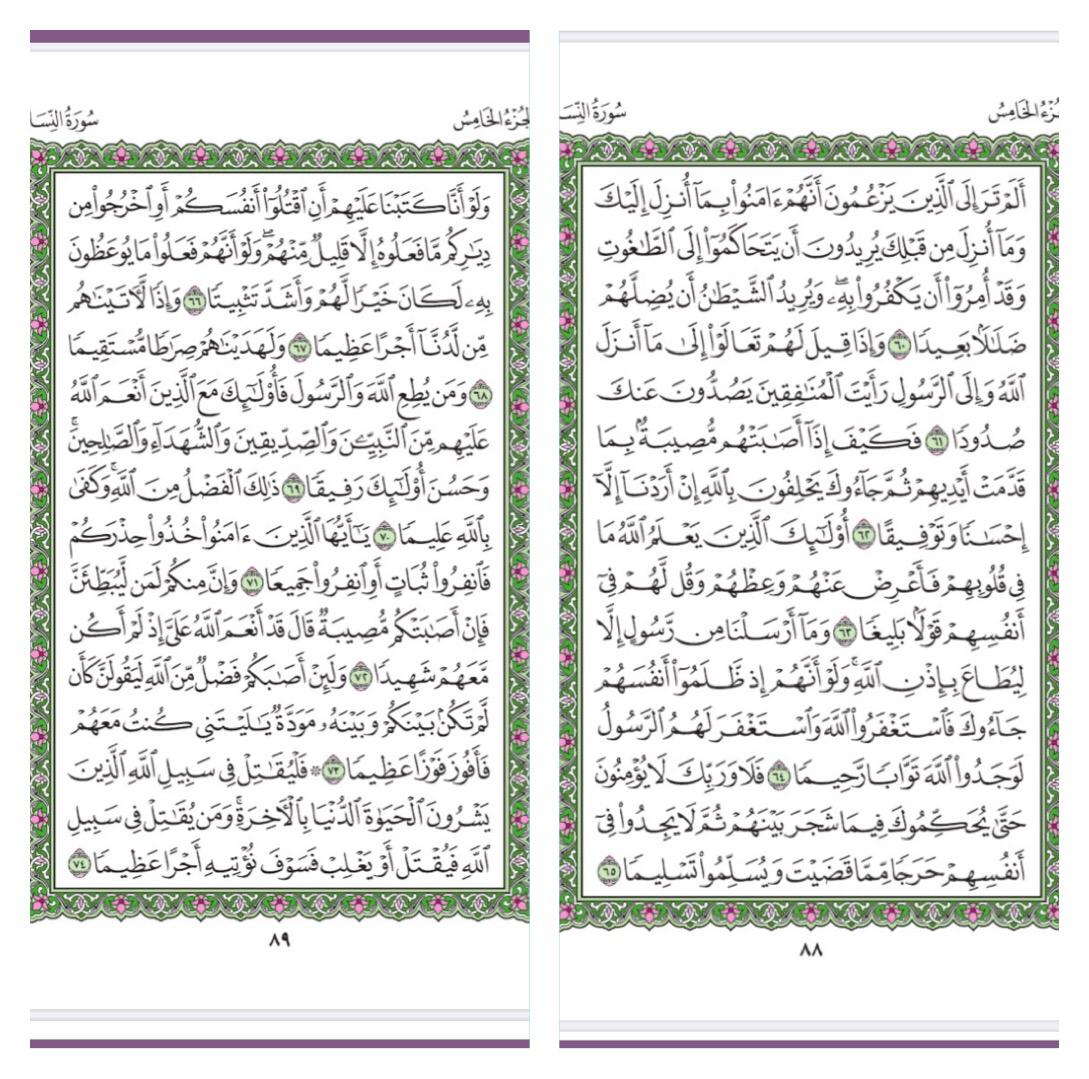 ـُزْءُ الخَامِسُ سُورَةُ النِّسَـ
أَلَمْ تَرَ إِلَى ٱلَّذِينَ يَزْعُمُونَ أَنَّهُمْ ءَامَنُوا۟ بِمَآ أُنزِلَ إِلَيْكَ
وَمَآ أُنزِلَ مِن قَبْلِكَ يُرِيدُونَ أَن يَتَحَاكَمُوٓا۟ إِلَى ٱلطَّٰغُوتِ
وَقَدْ أُمِرُوٓا۟ أَن يَكْفُرُوا۟ بِهِۦۖ وَيُرِيدُ ٱلشَّيْطَٰنُ أَن يُضِلَّهُمْ
ضَلَٰلًۢا بَعِيدًا ٦٠ وَإِذَا قِيلَ لَهُمْ تَعَالَوْا۟ إِلَىٰ مَآ أَنزَلَ
ٱللَّهُ وَإِلَى ٱلرَّسُولِ رَأَيْتَ ٱلْمُنَٰفِقِينَ يَصُدُّونَ عَنكَ
صُدُودًا ٦١ فَكَيْفَ إِذَآ أَصَٰبَتْهُم مُّصِيبَةٌۢ بِمَا
قَدَّمَتْ أَيْدِيهِمْ ثُمَّ جَآءُوكَ يَحْلِفُونَ بِٱللَّهِ إِنْ أَرَدْنَآ إِلَّآ
إِحْسَٰنًا وَتَوْفِيقًا ٦٢ أُو۟لَٰٓئِكَ ٱلَّذِينَ يَعْلَمُ ٱللَّهُ مَا
فِى قُلُوبِهِمْ فَأَعْرِضْ عَنْهُمْ وَعِظْهُمْ وَقُل لَّهُمْ فِىٓ
أَنفُسِهِمْ قَوْلًۢا بَلِيغًا ٦٣ وَمَآ أَرْسَلْنَا مِن رَّسُولٍ إِلَّا
لِيُطَاعَ بِإِذْنِ ٱللَّهِۚ وَلَوْ أَنَّهُمْ إِذ ظَّلَمُوٓا۟ أَنفُسَهُمْ
جَآءُوكَ فَٱسْتَغْفَرُوا۟ ٱللَّهَ وَٱسْتَغْفَرَ لَهُمُ ٱلرَّسُولُ
لَوَجَدُوا۟ ٱللَّهَ تَوَّابًا رَّحِيمًا ٦٤ فَلَا وَرَبِّكَ لَا يُؤْمِنُونَ
حَتَّىٰ يُحَكِّمُوكَ فِيمَا شَجَرَ بَيْنَهُمْ ثُمَّ لَا يَجِدُوا۟ فِىٓ
أَنفُسِهِمْ حَرَجًا مِّمَّا قَضَيْتَ وَيُسَلِّمُوا۟ تَسْلِيمًا ٦٥
٨٨
لجُزْءُ الخَامِسُ سُورَةُ النِّسَا
وَلَوْ أَنَّا كَتَبْنَا عَلَيْهِمْ أَنِ ٱقْتُلُوٓا۟ أَنفُسَكُمْ أَوِ ٱخْرُجُوا۟ مِن
دِيَٰرِكُم مَّا فَعَلُوهُ إِلَّا قَلِيلٌ مِّنْهُمْۖ وَلَوْ أَنَّهُمْ فَعَلُوا۟ مَا يُوعَظُونَ
بِهِۦ لَكَانَ خَيْرًا لَّهُمْ وَأَشَدَّ تَثْبِيتًا ٦٦ وَإِذًا لَّءَاتَيْنَٰهُم
مِّن لَّدُنَّآ أَجْرًا عَظِيمًا ٦٧ وَلَهَدَيْنَٰهُمْ صِرَٰطًا مُّسْتَقِيمًا
٦٨ وَمَن يُطِعِ ٱللَّهَ وَٱلرَّسُولَ فَأُو۟لَٰٓئِكَ مَعَ ٱلَّذِينَ أَنْعَمَ ٱللَّهُ
عَلَيْهِم مِّنَ ٱلنَّبِيِّۦنَ وَٱلصِّدِّيقِينَ وَٱلشُّهَدَآءِ وَٱلصَّٰلِحِينَۚ
وَحَسُنَ أُو۟لَٰٓئِكَ رَفِيقًا ٦٩ ذَٰلِكَ ٱلْفَضْلُ مِنَ ٱللَّهِۚ وَكَفَىٰ
بِٱللَّهِ عَلِيمًا ٧٠ يَٰٓأَيُّهَا ٱلَّذِينَ ءَامَنُوا۟ خُذُوا۟ حِذْرَكُمْ
فَٱنفِرُوا۟ ثُبَاتٍ أَوِ ٱنفِرُوا۟ جَمِيعًا ٧١ وَإِنَّ مِنكُمْ لَمَن لَّيُبَطِّئَنَّ
فَإِنْ أَصَٰبَتْكُم مُّصِيبَةٌ قَالَ قَدْ أَنْعَمَ ٱللَّهُ عَلَىَّ إِذْ لَمْ أَكُن
مَّعَهُمْ شَهِيدًا ٧٢ وَلَئِنْ أَصَٰبَكُمْ فَضْلٌ مِّنَ ٱللَّهِ لَيَقُولَنَّ كَأَن
لَّمْ تَكُنۢ بَيْنَكُمْ وَبَيْنَهُۥ مَوَدَّةٌ يَٰلَيْتَنِى كُنتُ مَعَهُمْ
فَأَفُوزَ فَوْزًا عَظِيمًا ٧٣ ۞ فَلْيُقَٰتِلْ فِى سَبِيلِ ٱللَّهِ ٱلَّذِينَ
يَشْرُونَ ٱلْحَيَوٰةَ ٱلدُّنْيَا بِٱلْءَاخِرَةِۚ وَمَن يُقَٰتِلْ فِى سَبِيلِ
ٱللَّهِ فَيُقْتَلْ أَوْ يَغْلِبْ فَسَوْفَ نُؤْتِيهِ أَجْرًا عَظِيمًا ٧٤
٨٩